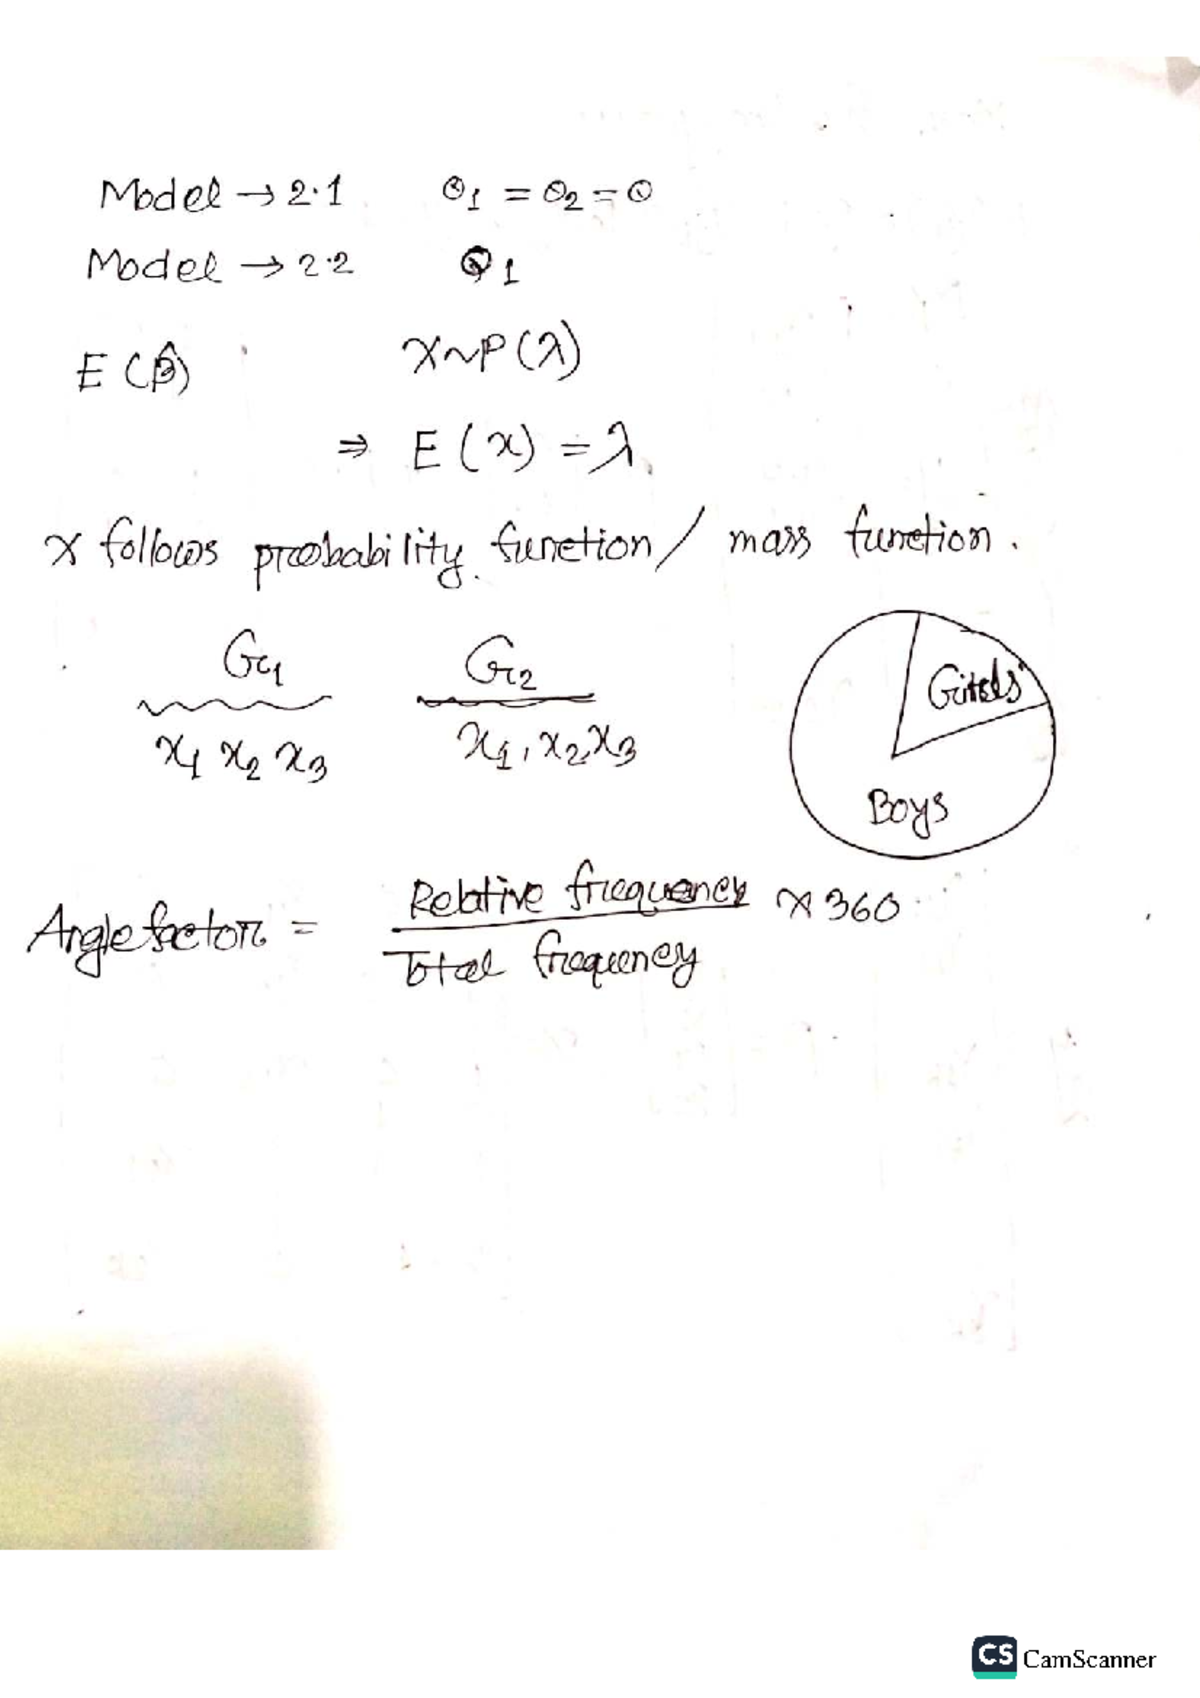 Model → 2.1    θ1 = θ2 = θ
Model → 2.2    θ1
E(β̂)    X~P(λ)
⇒ E(x) = λ.
X follows probability function / mass function.
G1    G2
x1 x2 x3    x1, x2, x3
Girls
Boys
Angle factor = Relative frequency / Total frequency × 360
CS CamScanner